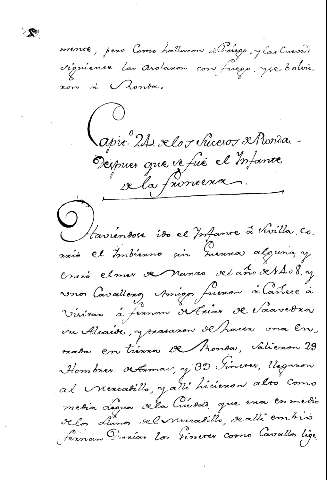 mence, pero como hallaron á Priego, y las Cuevas
siguiente las Asolaron con fuego, y se bolvie
ron á Ronda.
Capit.º 24 de los Sucesos de Ronda
despues que se fué el Infante
de la frontera.
Haviendose ido el Infante á Sevilla, co
rrió el Imbierno sin Guerra alguna, y
entró el mes de Marzo del año de 1408, y
unos Cavalleros Amigos fueron á Cañete á
Visitar á fernan de Arias de Saavedra
su Alcaide, y trataron de hacer una en
trada en tierra de Ronda, Salieron
Hombres de Armas, y Ginetes, llegaron
al Mercadillo, y allí hicieron alto como
media Legua de la Ciudad, que era en medio
de los llanos del Mercadillo, de allí embió
fernan Darias los Ginetes como Cavallos lige